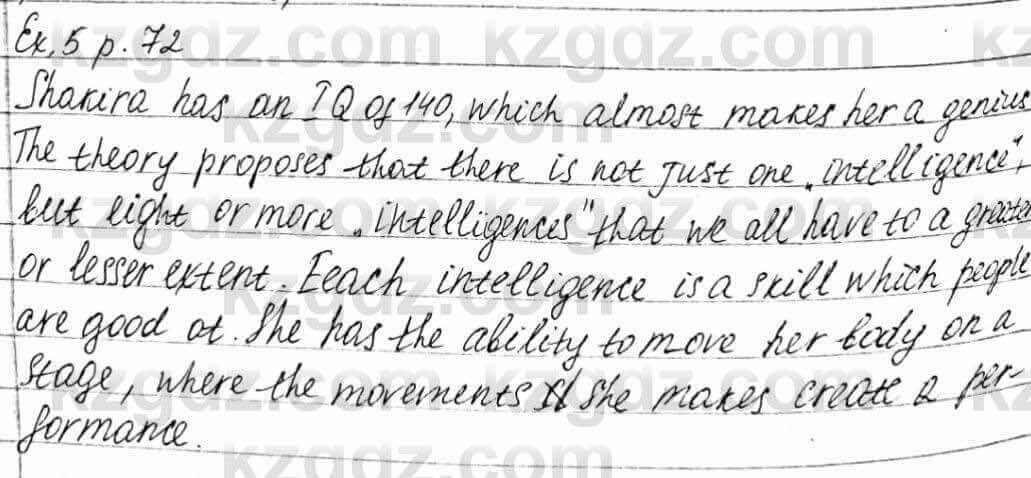 Ex. 5 p. 72
Shakira has an IQ of 140, which almost makes her a genius
The theory proposes that there is not just one „intelligence",
but eight or more „intelligences" that we all have to a greater
or lesser extent. Eeach intelligence is a skill which people
are good at. She has the ability to move her body on a
stage, where the movements she makes create a per-
formance.
kzgdz.com